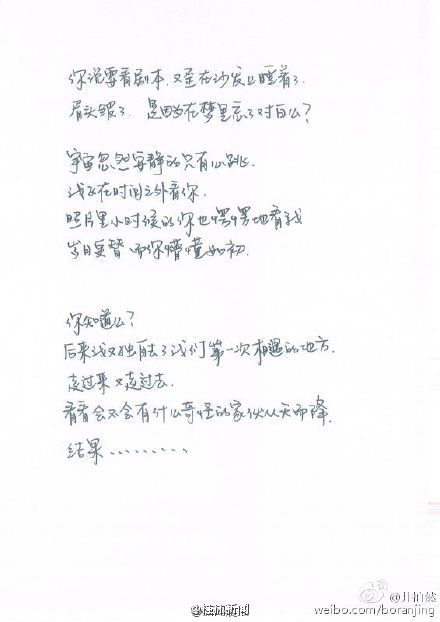 你说要看剧本,又歪在沙发上睡着了.
眉头皱了,是因为在梦里忘了对白么?
宇宙忽然安静的只有心跳.
我正在时间之外看你.
照片里小时候的你也愣愣地看我
岁月更替 而你懵懂如初.
你知道么?
后来我又独自去了我们第一次相遇的地方.
走过来又走过去.
看看会不会有什么奇怪的家伙从天而降.
结果..........
@桂加新闻
@井柏然
weibo.com/boranjing